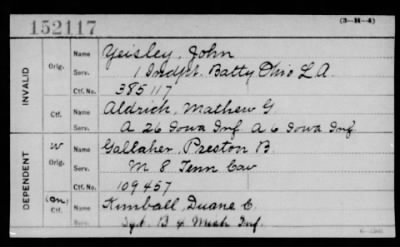 152117
(3-H-4)
INVALID
Orig.
Name
Yeisley, John
Serv.
1 Indpt. Batty Ohio L.A.
Ctf. No.
385117
Ctf.
Name
Aldrich, Mathew G.
Serv.
A 26 Iowa Inf A 6 Iowa Inf.
DEPENDENT
W
Orig.
Name
Gallaher, Preston B.
Serv.
M 8 Tenn Cav
Ctf. No.
109457
Ctf.
Name
Kimball, Duane C.
Serv.
Sgt. B 4 Mich Inf.